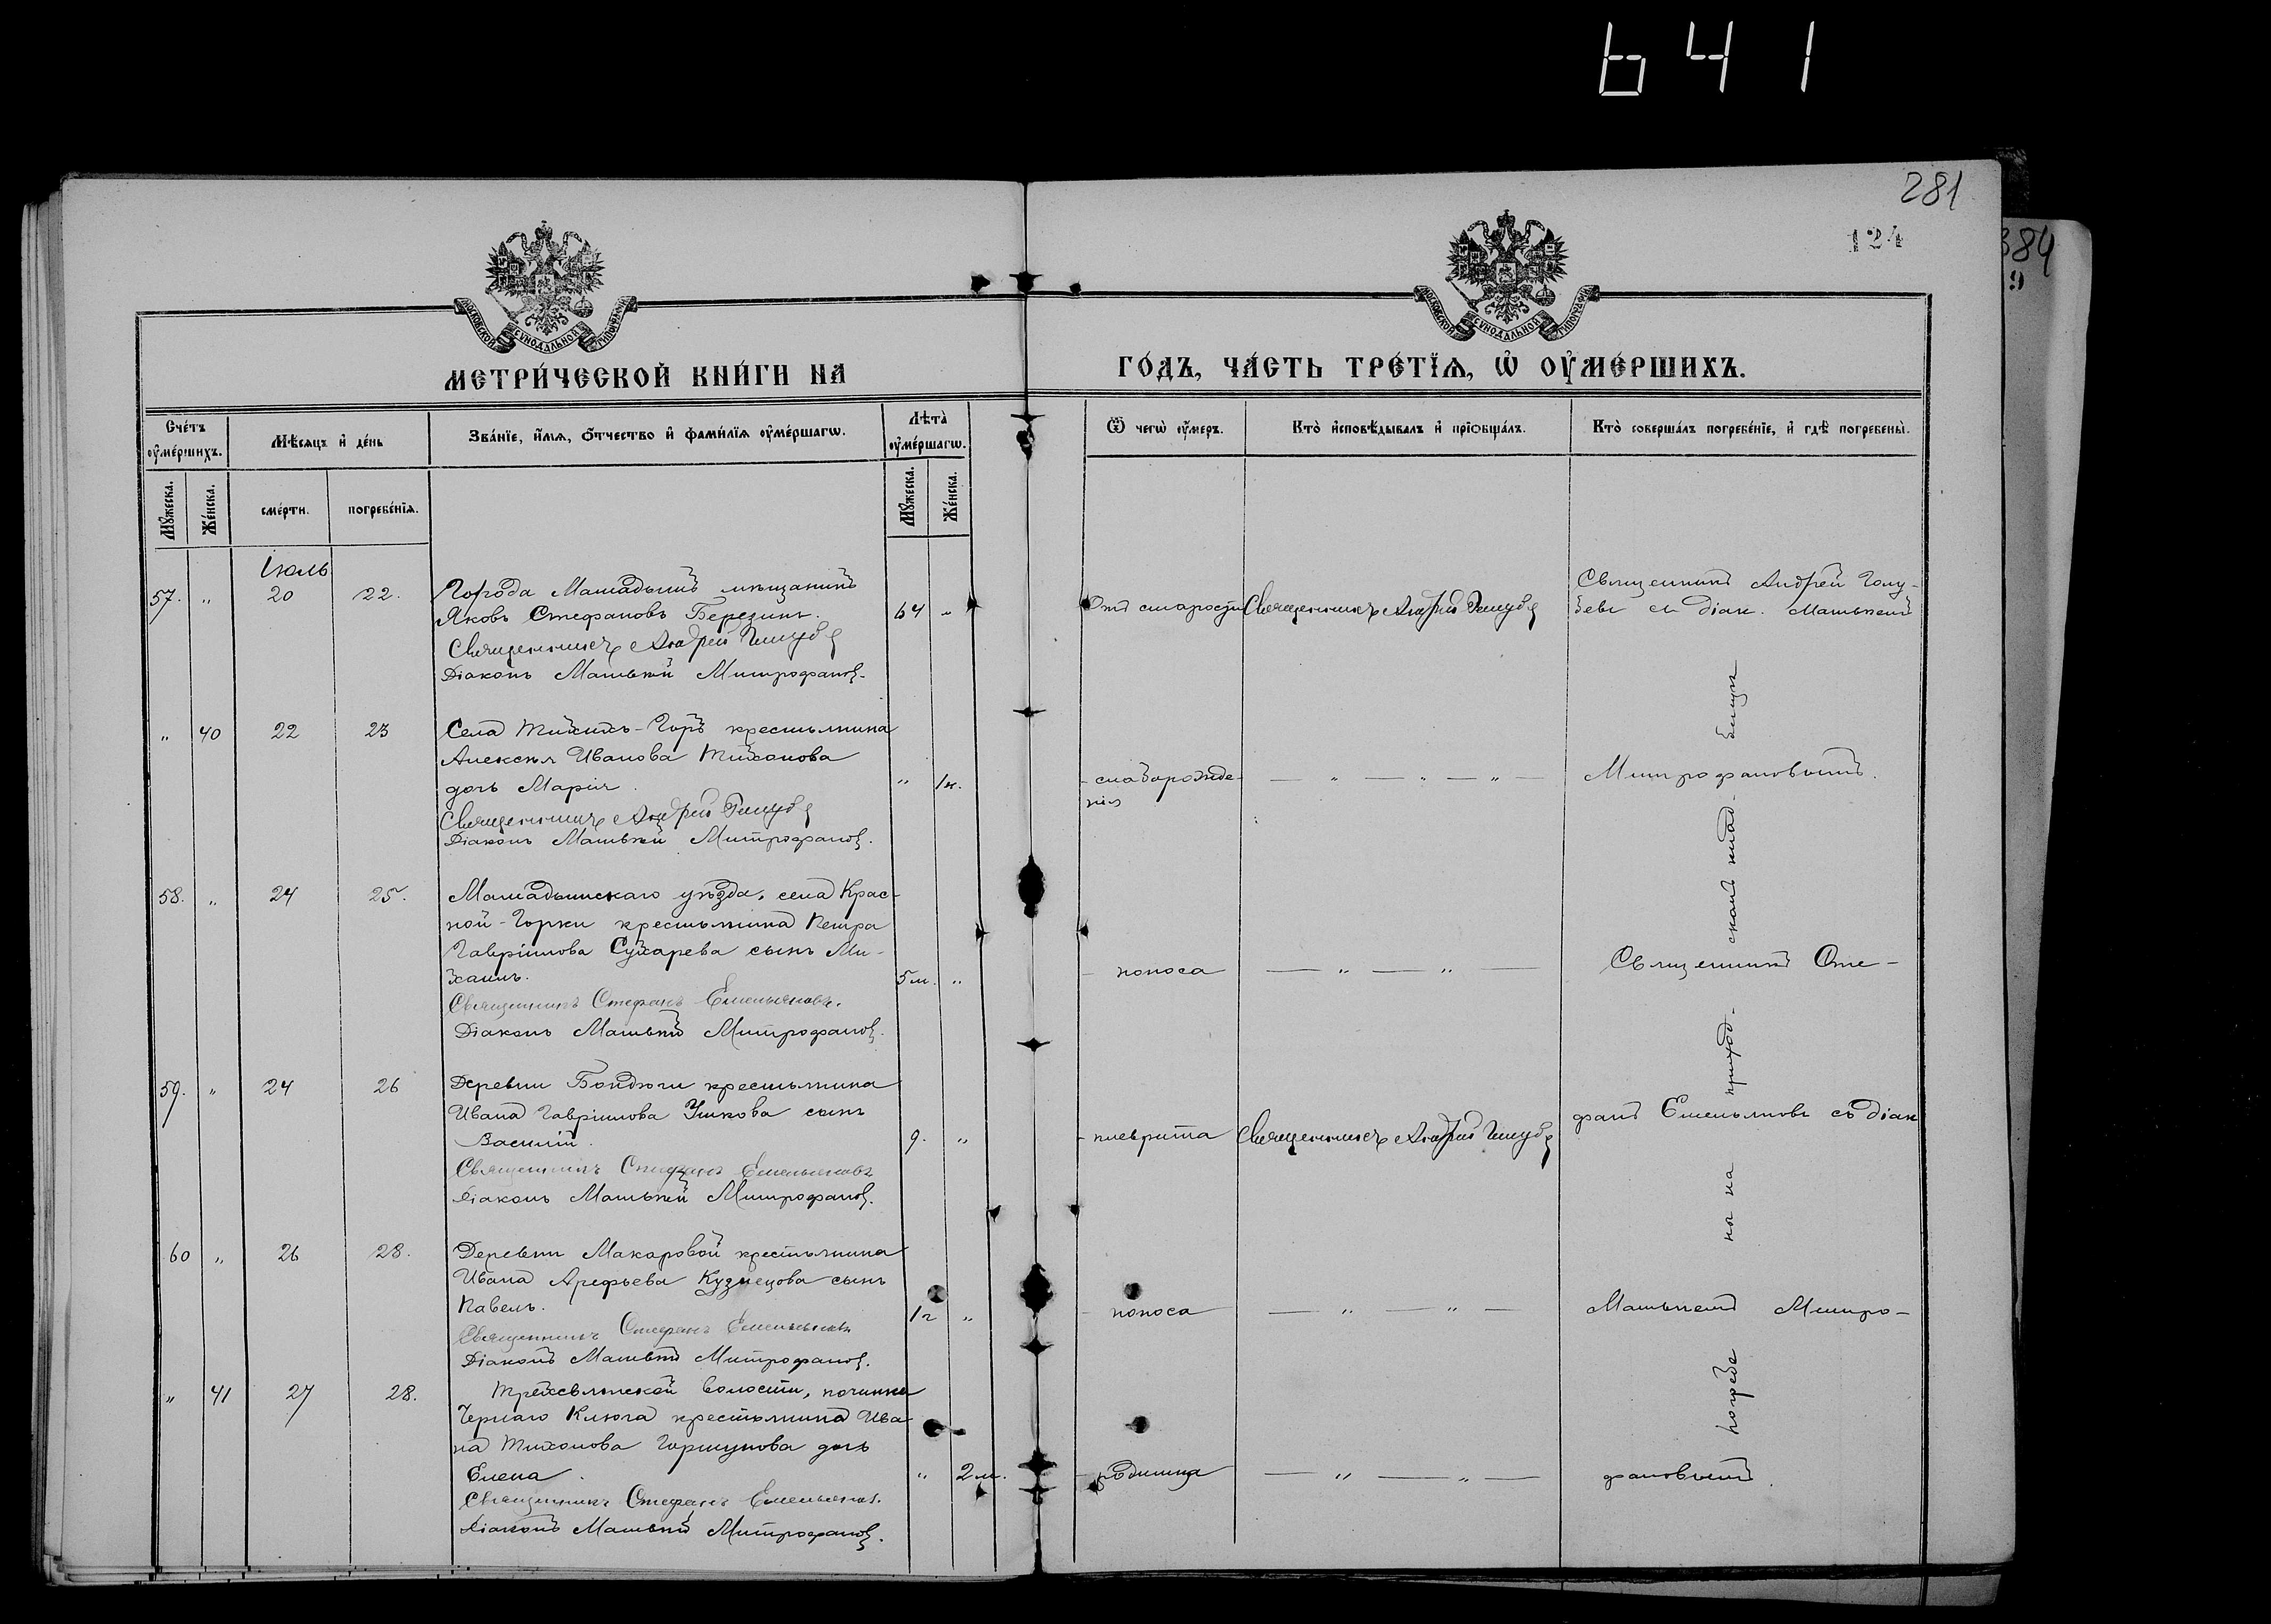 641
281
124
384
9
МОСКОВСКОЙ СѴНОДАЛЬНОЙ ТИПОГРАФІИ
МОСКОВСКОЙ СѴНОДАЛЬНОЙ ТИПОГРАФІИ
МЕТРИ́ЧЕСКОЙ КНИ́ГИ НА
ГО́ДЪ, ЧА́СТЬ ТРЕ́ТЇѦ, Ѡ҆ ОУ҆МЕ́РШИХЪ.
Сче́тъ оу҆ме́ршихъ.
Мѣ́сѧцъ и҆ де́нь
Зва́нїе, и҆́мѧ, ѻ҆́тчество и҆ фами́лїѧ оу҆ме́ршагѡ.
Лѣта̀ оу҆ме́ршагѡ.
Ѿ чегѡ̀ оу҆́меръ.
Кто̀ и҆сповѣ́дывалъ и҆ прїѻбща́лъ.
Кто̀ соверша́лъ погребе́нїе, и҆ гдѣ̀ погребены̀.
Мꙋ́жеска.
Же́нска.
сме́рти.
погребе́нїѧ.
Мꙋ́жеска.
Же́нска.
Іюль
57. „ 20 22. Города Мамадышъ мѣщанинъ
Яковъ Стефановъ Березинъ. 64 „
Священникъ Андрей Голубев
Діаконъ Матвѣй Митрофанов.
Отъ старости Священникъ Андрей Голубев
Священникъ Андрей Голу-
бевъ съ діак. Матвѣемъ
„ 40 22 23 Села Тихихъ-Горъ крестьянина
Алексѣя Иванова Тихонова
дочь Марія. „ 1н.
Священникъ Андрей Голубев
Діаконъ Матвѣй Митрофанов.
- слаборожде-
нія
— „ — „ — „ —
Митрофановымъ.
58. „ 24 25. Мамадышскаго уѣзда, села Крас-
ной-Горки крестьянина Петра
Гаврілова Сухарева сынъ Ми-
хаилъ. 5м. „
Священникъ Стефанъ Емельяновъ.
Діаконъ Матвѣй Митрофанов.
- поноса — „ — „ —
Священникъ Сте-
59. „ 24 26 Деревни Бондюги крестьянина
Ивана Гаврілова Ушкова сынъ
Василій. 9. „
Священникъ Стефанъ Емельяновъ
Діаконъ Матвѣй Митрофанов.
- плеврита Священникъ Андрей Голубев
фанъ Емельяновъ съ діак
60 „ 26 28. Деревни Макаровой крестьянина
Ивана Арефьева Кузнецова сынъ
Павелъ. 1г „
Священникъ Стефанъ Емельяновъ
Діаконъ Матвѣй Митрофанов.
- поноса — „ — „ —
Матвѣемъ Митро-
„ 41 27 28. Трехсвятской волости, починка
Чернаго Ключа крестьянина Ива-
на Тихонова Горшунова дочь
Елена. „ 2м.
Священникъ Стефанъ Емельянов.
Діаконъ Матвѣй Митрофанов.
- родимца — „ — „ —
фановымъ.
погребе
ны на
приход-
скомъ клад-
бищѣ